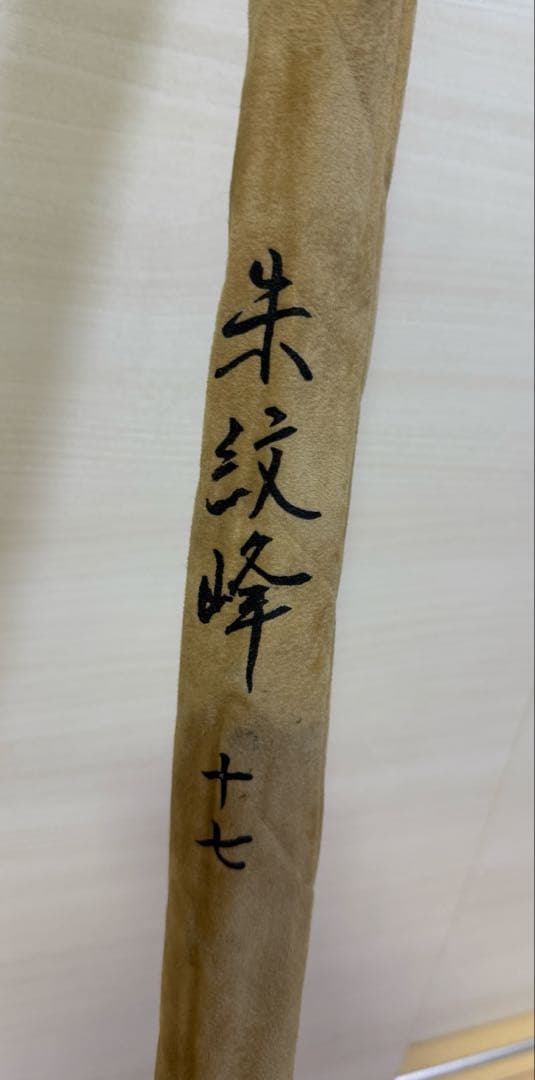 朱紋峰
十七